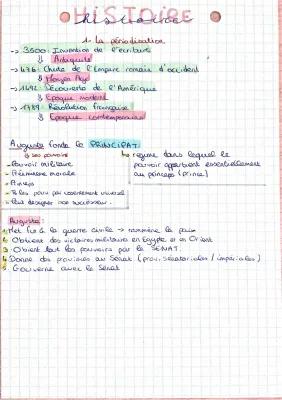 HiSTOIRE
histoire
1- la périodisation
-> 3500: Invention de l'écriture
⇓ Antiquité
-> 476: Chute de l'Empire romain d'occident
⇓ Moyen Age
-> 1492: Découverte de l'Amérique
⇓ Epoque moderne
-> 1789: Révolution française
⇓ Epoque contemporaine
Auguste fonde le PRINCIPAT.
↓ ses pouvoirs
- Pouvoir militaire
- Princeps
- Peut designer son successeur.
↳ regime dans lequel le
pouvoir appartient essentiellement
au princeps (prince)
Auguste:
1. Met fin à la guerre civile -> ramène la paix
2. Obtient des victoires militaire en Egypte et en Orient
3. Obtient tout les pouvoirs par le SENAT.
4. Donne des provinces au Sénat (prov. sénatoriales / impériales)
5. Gouverne avec le Sénat